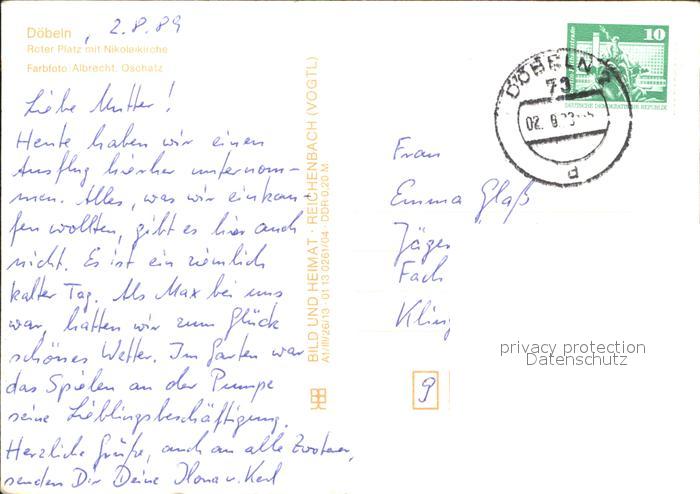 Döbeln, 2.8.89
Roter Platz mit Nikolaikirche
Farbfoto Albrecht, Oschatz
Liebe Mutter!
Heute haben wir einen
Ausflug hierher unternom-
men. Alles, was wir einkau-
fen wollten, gibt es hier auch
nicht. Es ist ein ziemlich
kalter Tag. Als Max bei uns
war, hatten wir zum Glück
schönes Wetter. Im Garten war
das Spielen an der Pumpe
seine Lieblingsbeschäftigung.
Herzliche Grüße, auch an alle
senden Dir Deine Ilona u. Karl
BILD UND HEIMAT · REICHENBACH (VOGTL)
A1/III/26/13 · 01 13 0261/04 · DDR 0,20 M
10
DEUTSCHE DEMOKRATISCHE REPUBLIK
DÖBELN 2
73
02. 8.
d
Frau
Emma Glaß
Jäger
Fach
Kling
privacy protection
Datenschutz
9